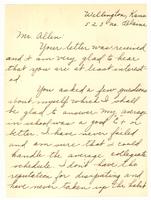 Wellington, Kans
523 no. Blaine
Mr. Allen
Your letter was received
and I am very glad to hear
that you are at least interest-
ed.
You asked a few questions
about myself which I shall
be glad to answer. my average
in school was a good C+ or
better. I have never failed
and am sure that I could
handle the average collegiate
schedule. I don't have the
reputation for dissipating and
have never taken up the habit